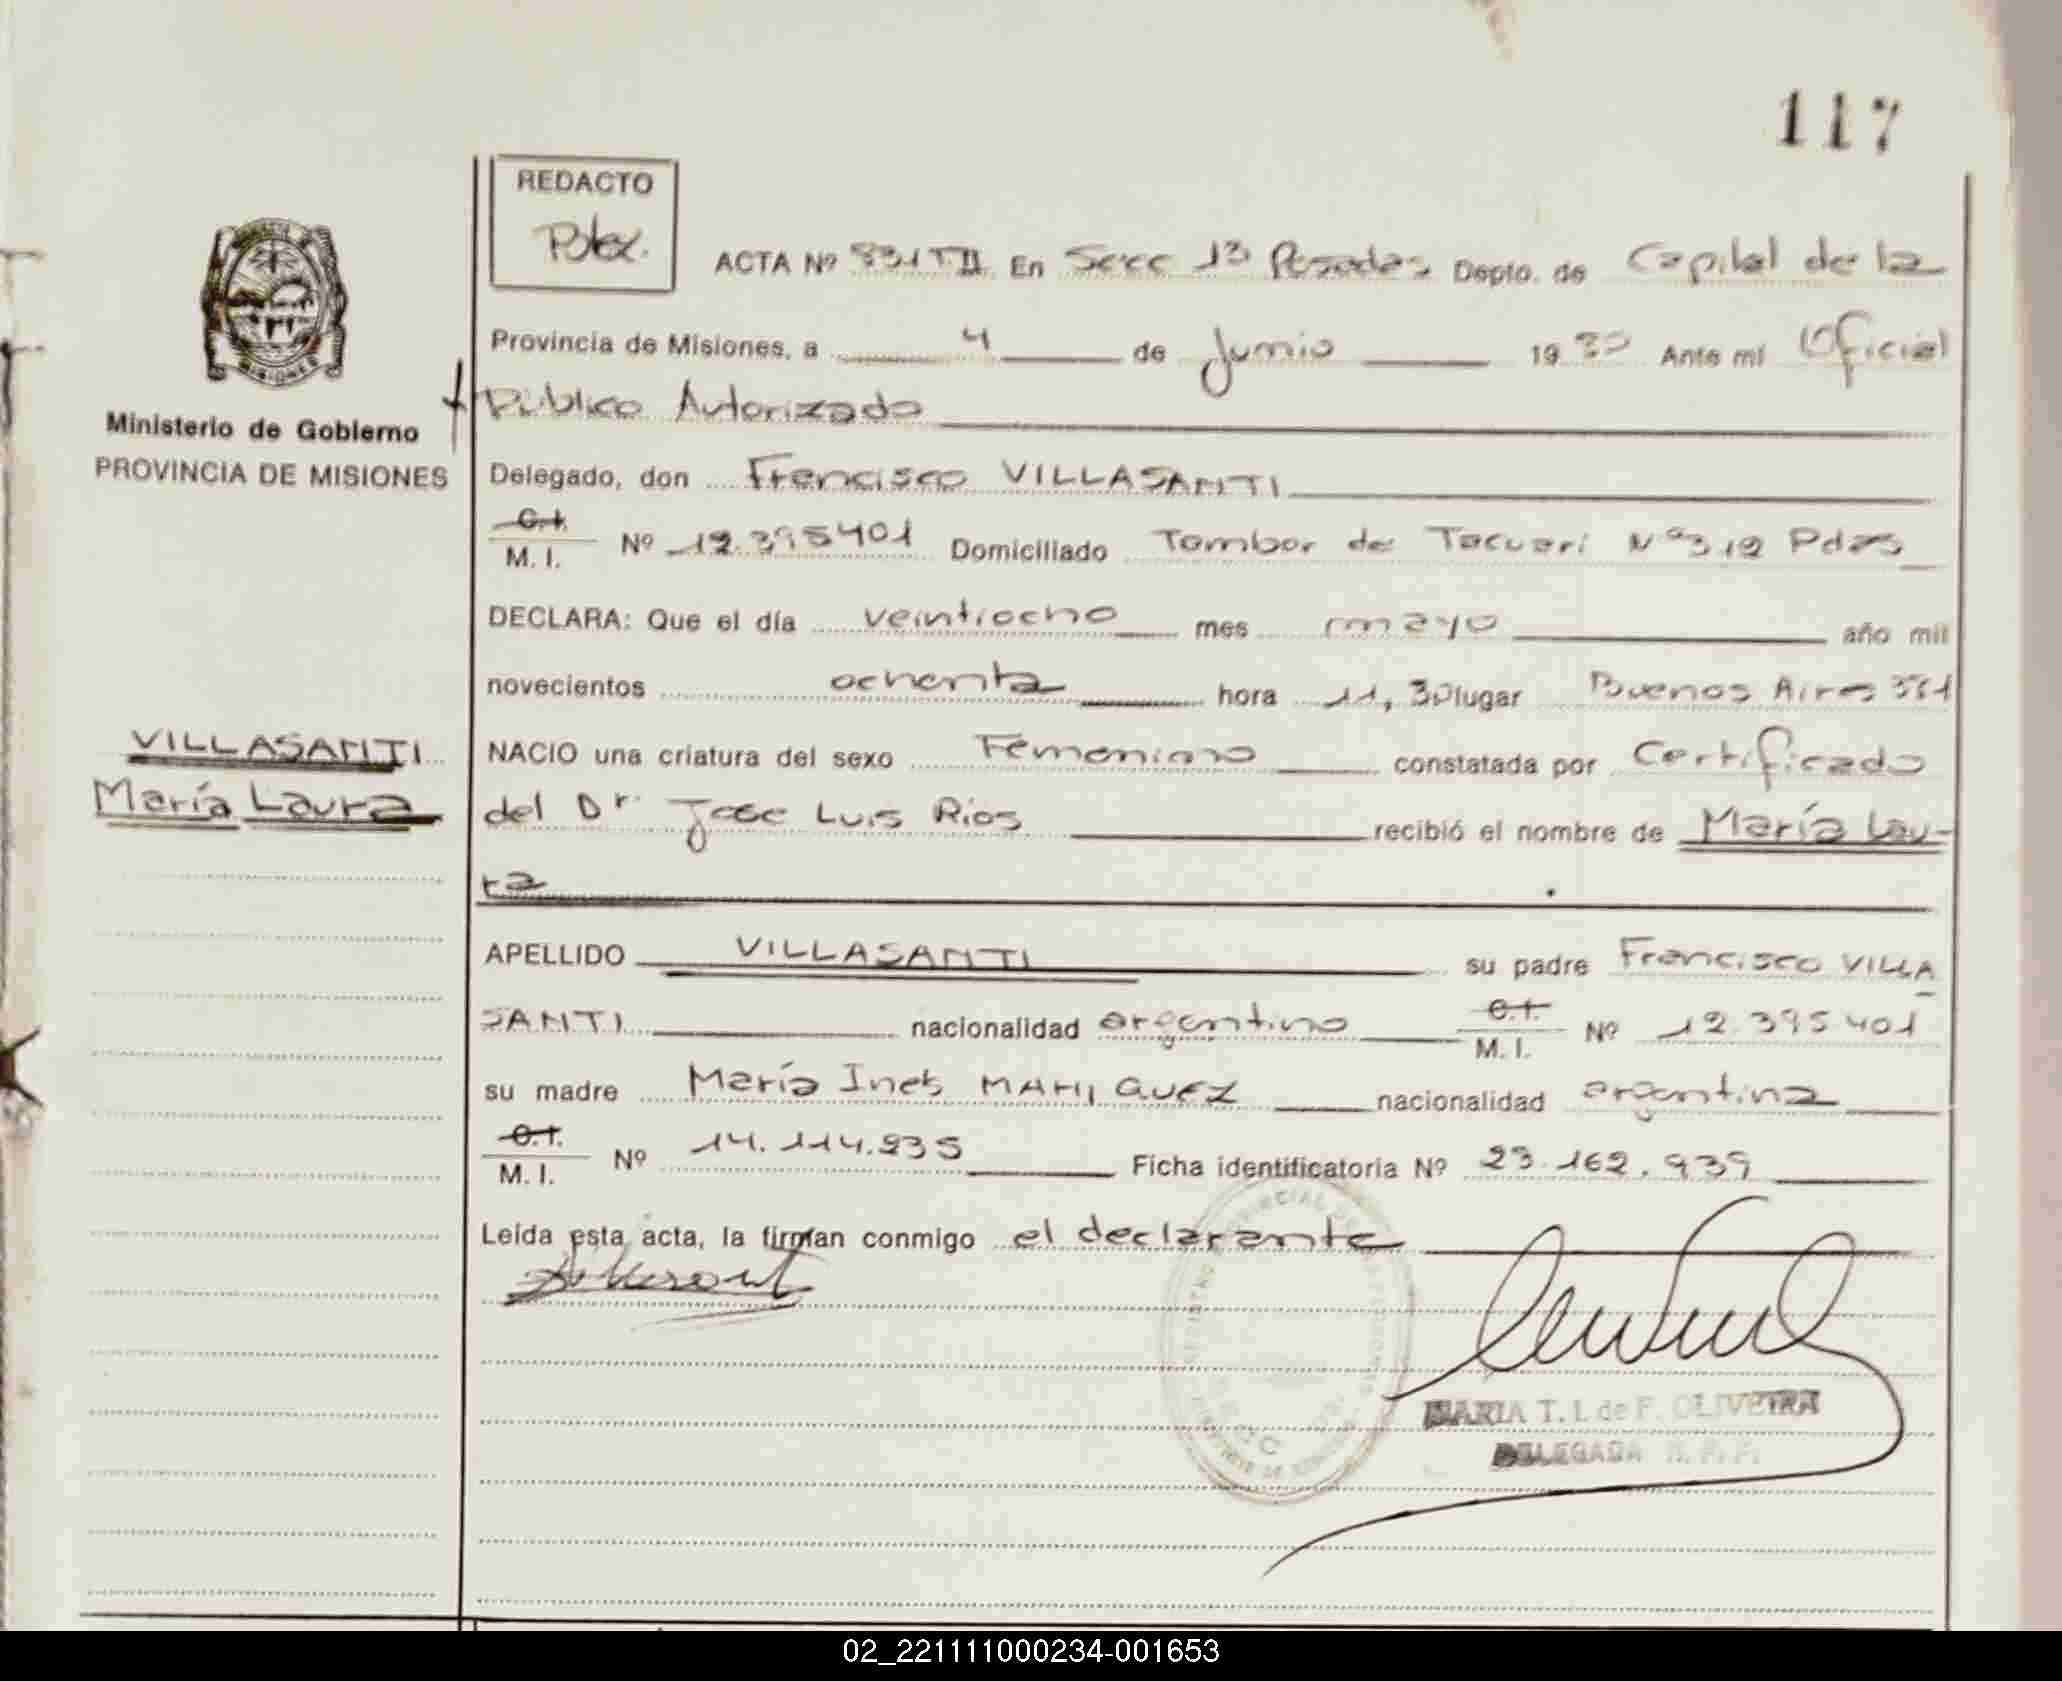 117
REDACTO
ACTA Nº 831 T II En Secc 13 Posadas Depto. de Capital de la
Provincia de Misiones, a 4 de Junio 1980 Ante mi Oficial
Público Autorizado
Ministerio de Gobierno
PROVINCIA DE MISIONES
Delegado, don Francisco VILLASANTI
C.I.
M. I. Nº 12.395401 Domiciliado Tambor de Tacuari Nº 312 Pdas
DECLARA: Que el día veintiocho mes mayo año mil
novecientos ochenta hora 11,30 lugar Buenos Aires
VILLASANTI
María Laura
NACIO una criatura del sexo Femenino constatada por Certificado
del Dr. Jose Luis Ríos recibió el nombre de María Lau-
ra
APELLIDO VILLASANTI su padre Francisco VILLA
SANTI nacionalidad argentino C.I. M. I. Nº 12.395401
su madre María Ines nacionalidad argentina
C.I.
M. I. Nº 14.114.935 Ficha identificatoria Nº 23.162.939
Leída esta acta, la firman conmigo el declarante
MARIA T. I. de F. OLIVEIRA
DELEGADA R. P. P.
02_221111000234-001653